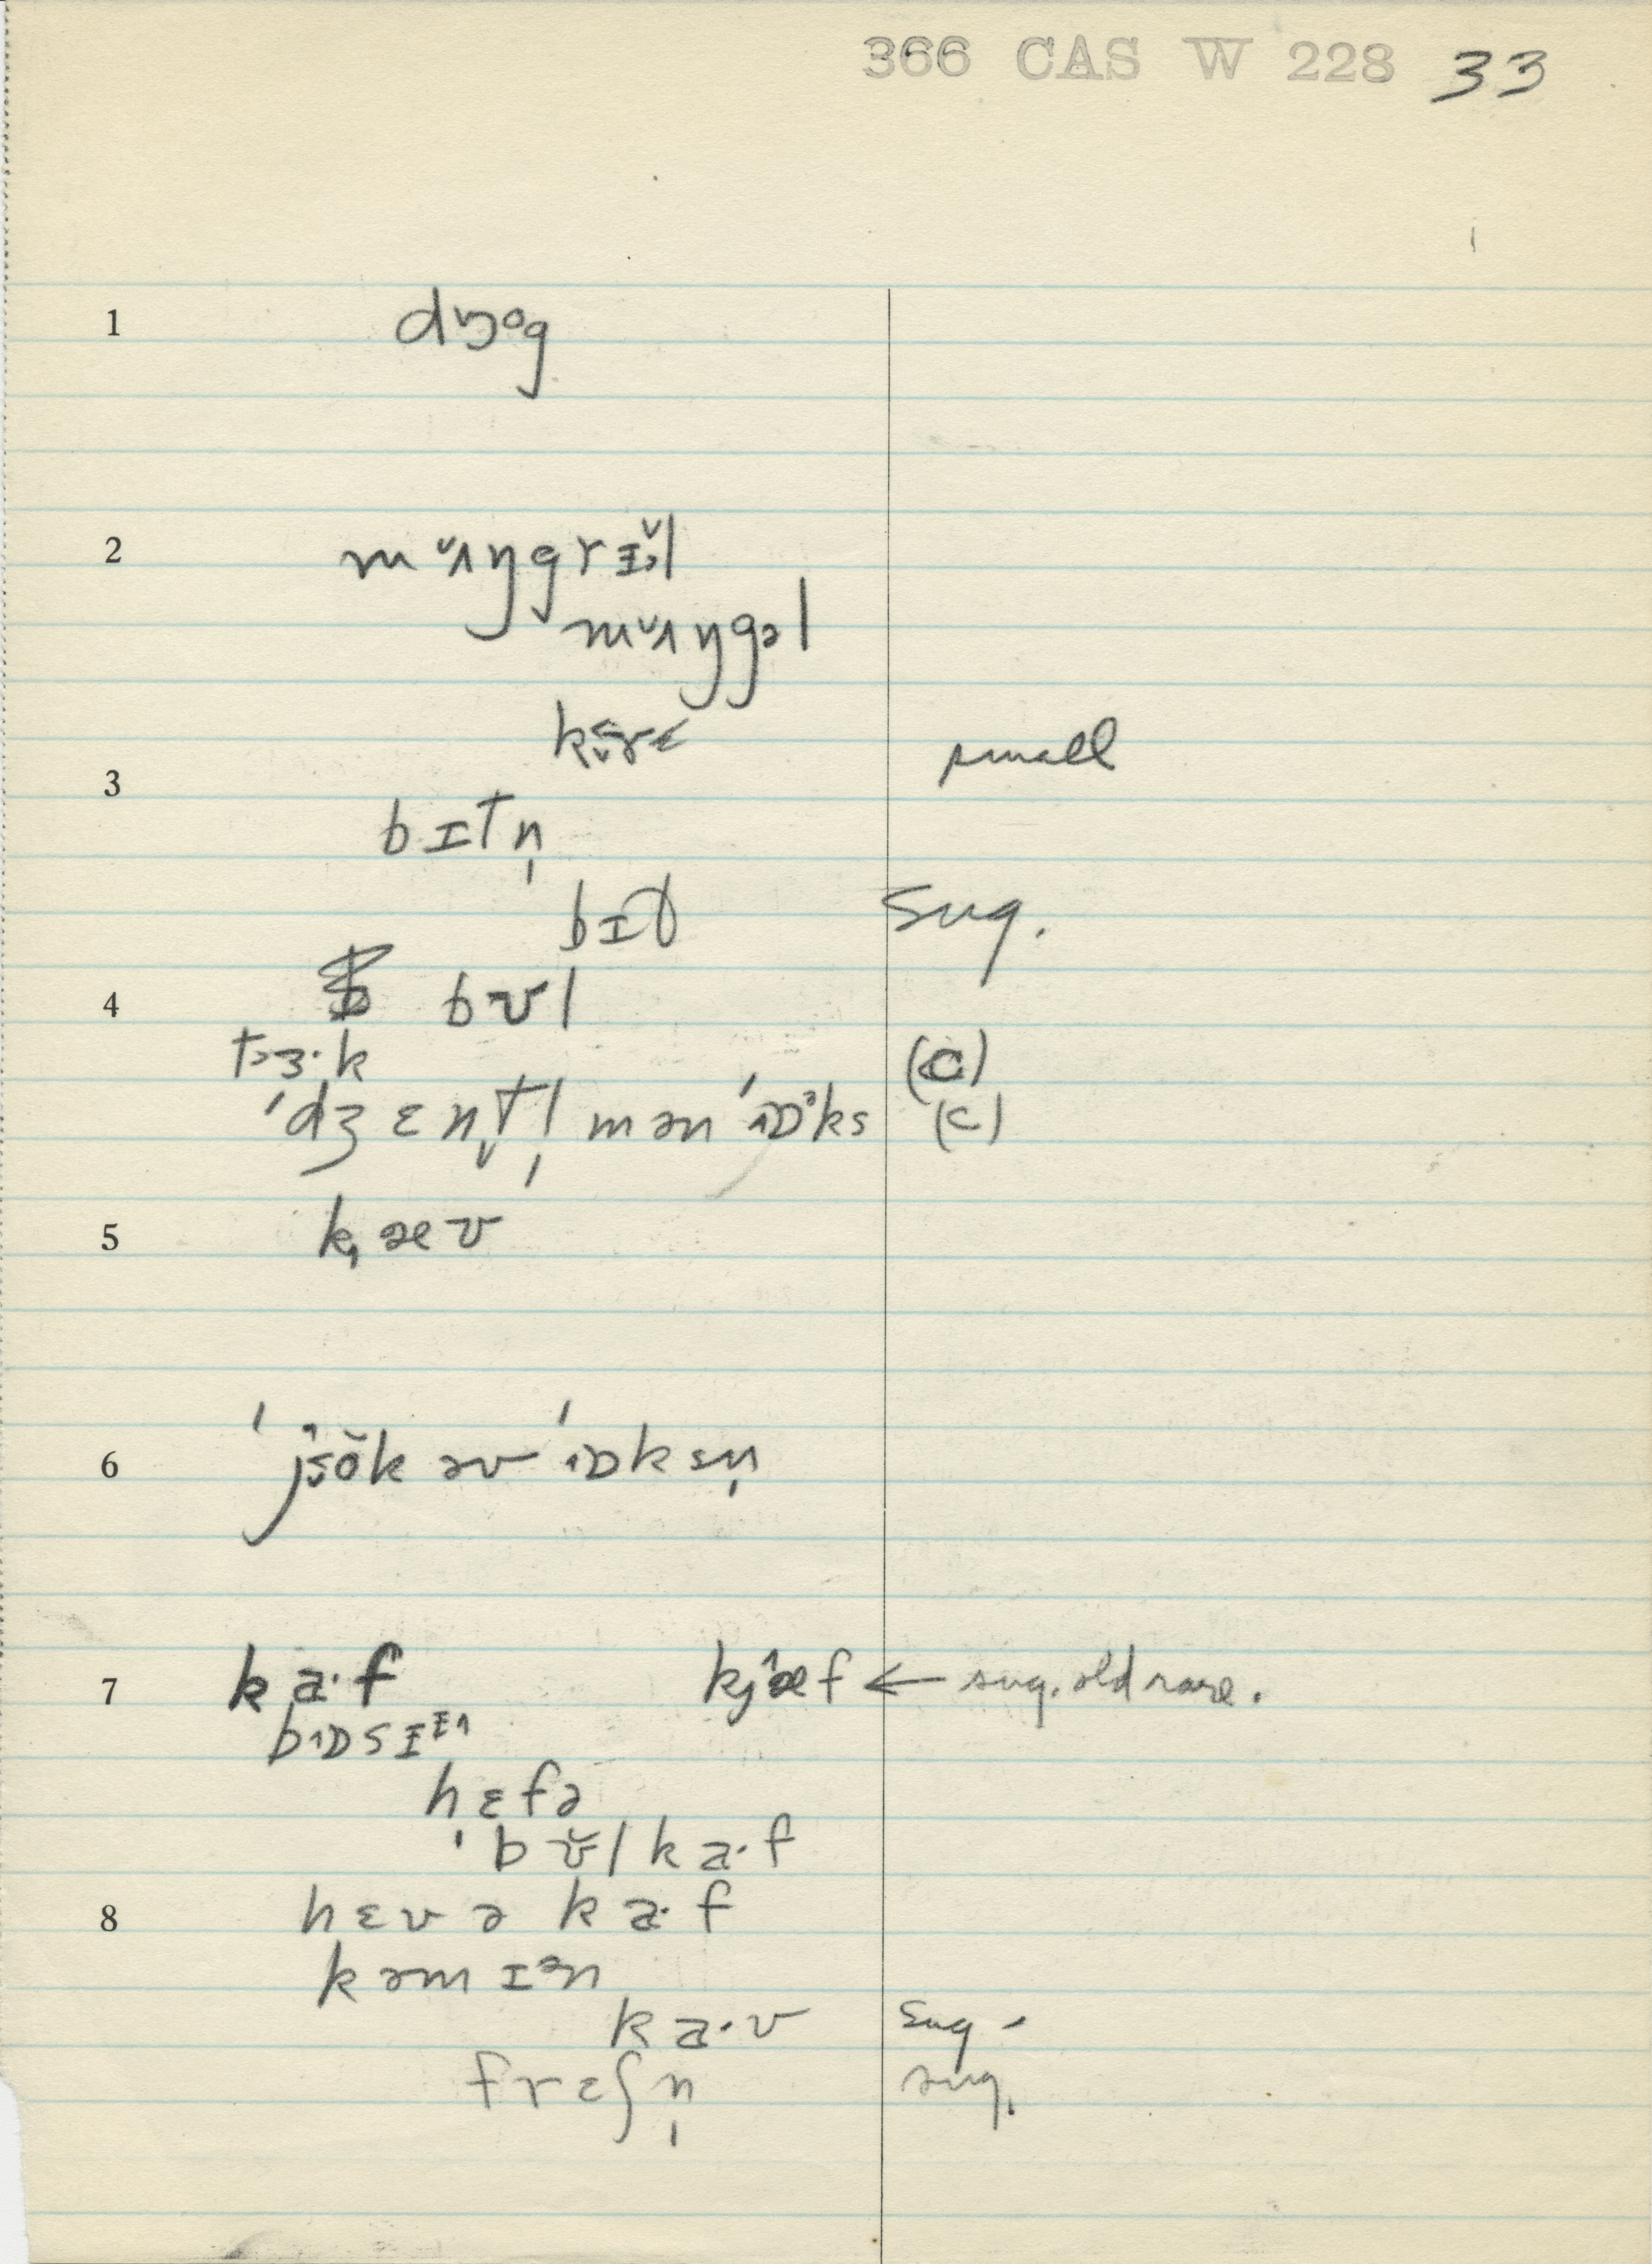 366 CAS W 228 33
1 dɔᵒg
2 mʌŋgrɪl
mʌŋgəl
small
3 bɪtn̩
bɪt̬ sug.
4 bʊl
(C)
ˈdʒɛnt̬l̩mən ˈɒᵊks (C)
5 k̟æv
6
7 ka·f kjæf ← sug. old rare.
hɛfə
ˈbʊ̆l ka·f
8 hɛvə ka·f
kəmɪᵊn
ka·v sug.
frɛʃn̩ sug.